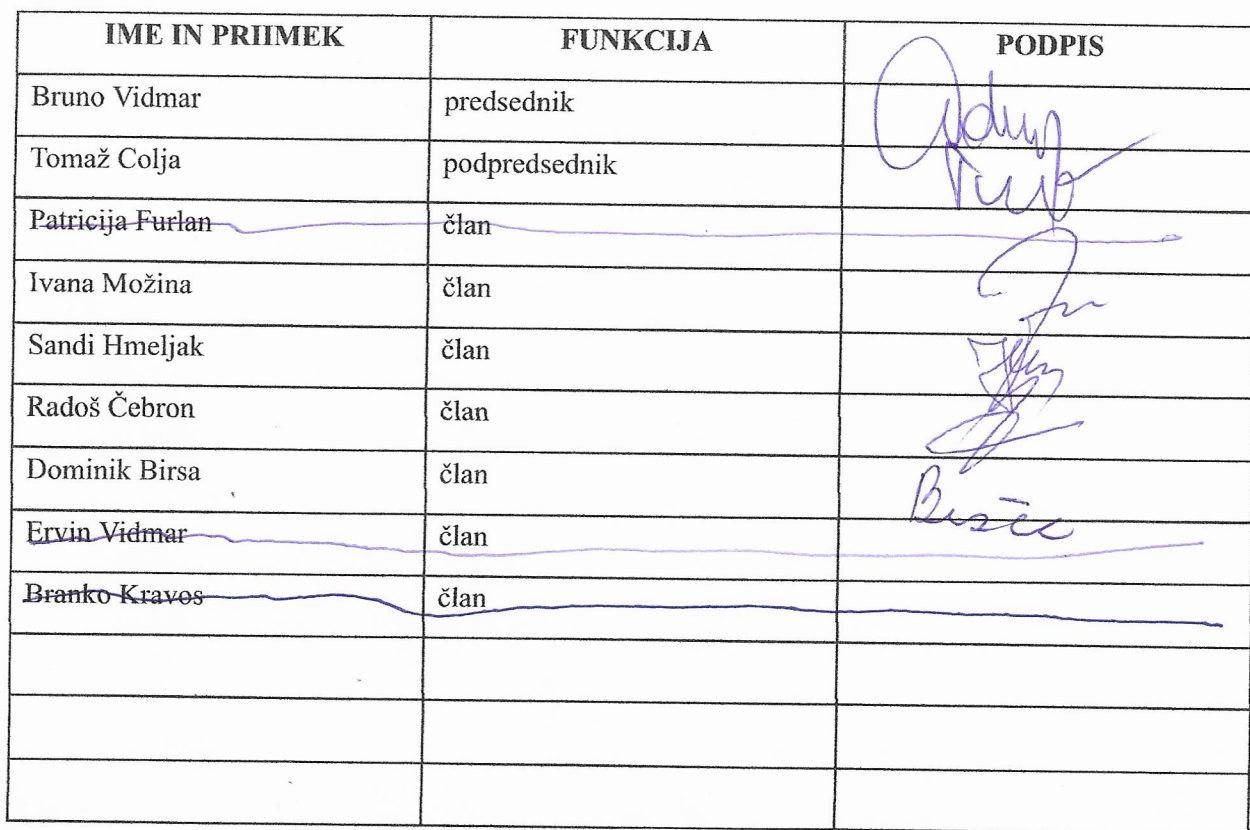 IME IN PRIIMEK FUNKCIJA PODPIS
Bruno Vidmar predsednik
Tomaž Colja podpredsednik
Patricija Furlan član
Ivana Možina član
Sandi Hmeljak član
Radoš Čebron član
Dominik Birsa član
Ervin Vidmar član
Branko Kravos član